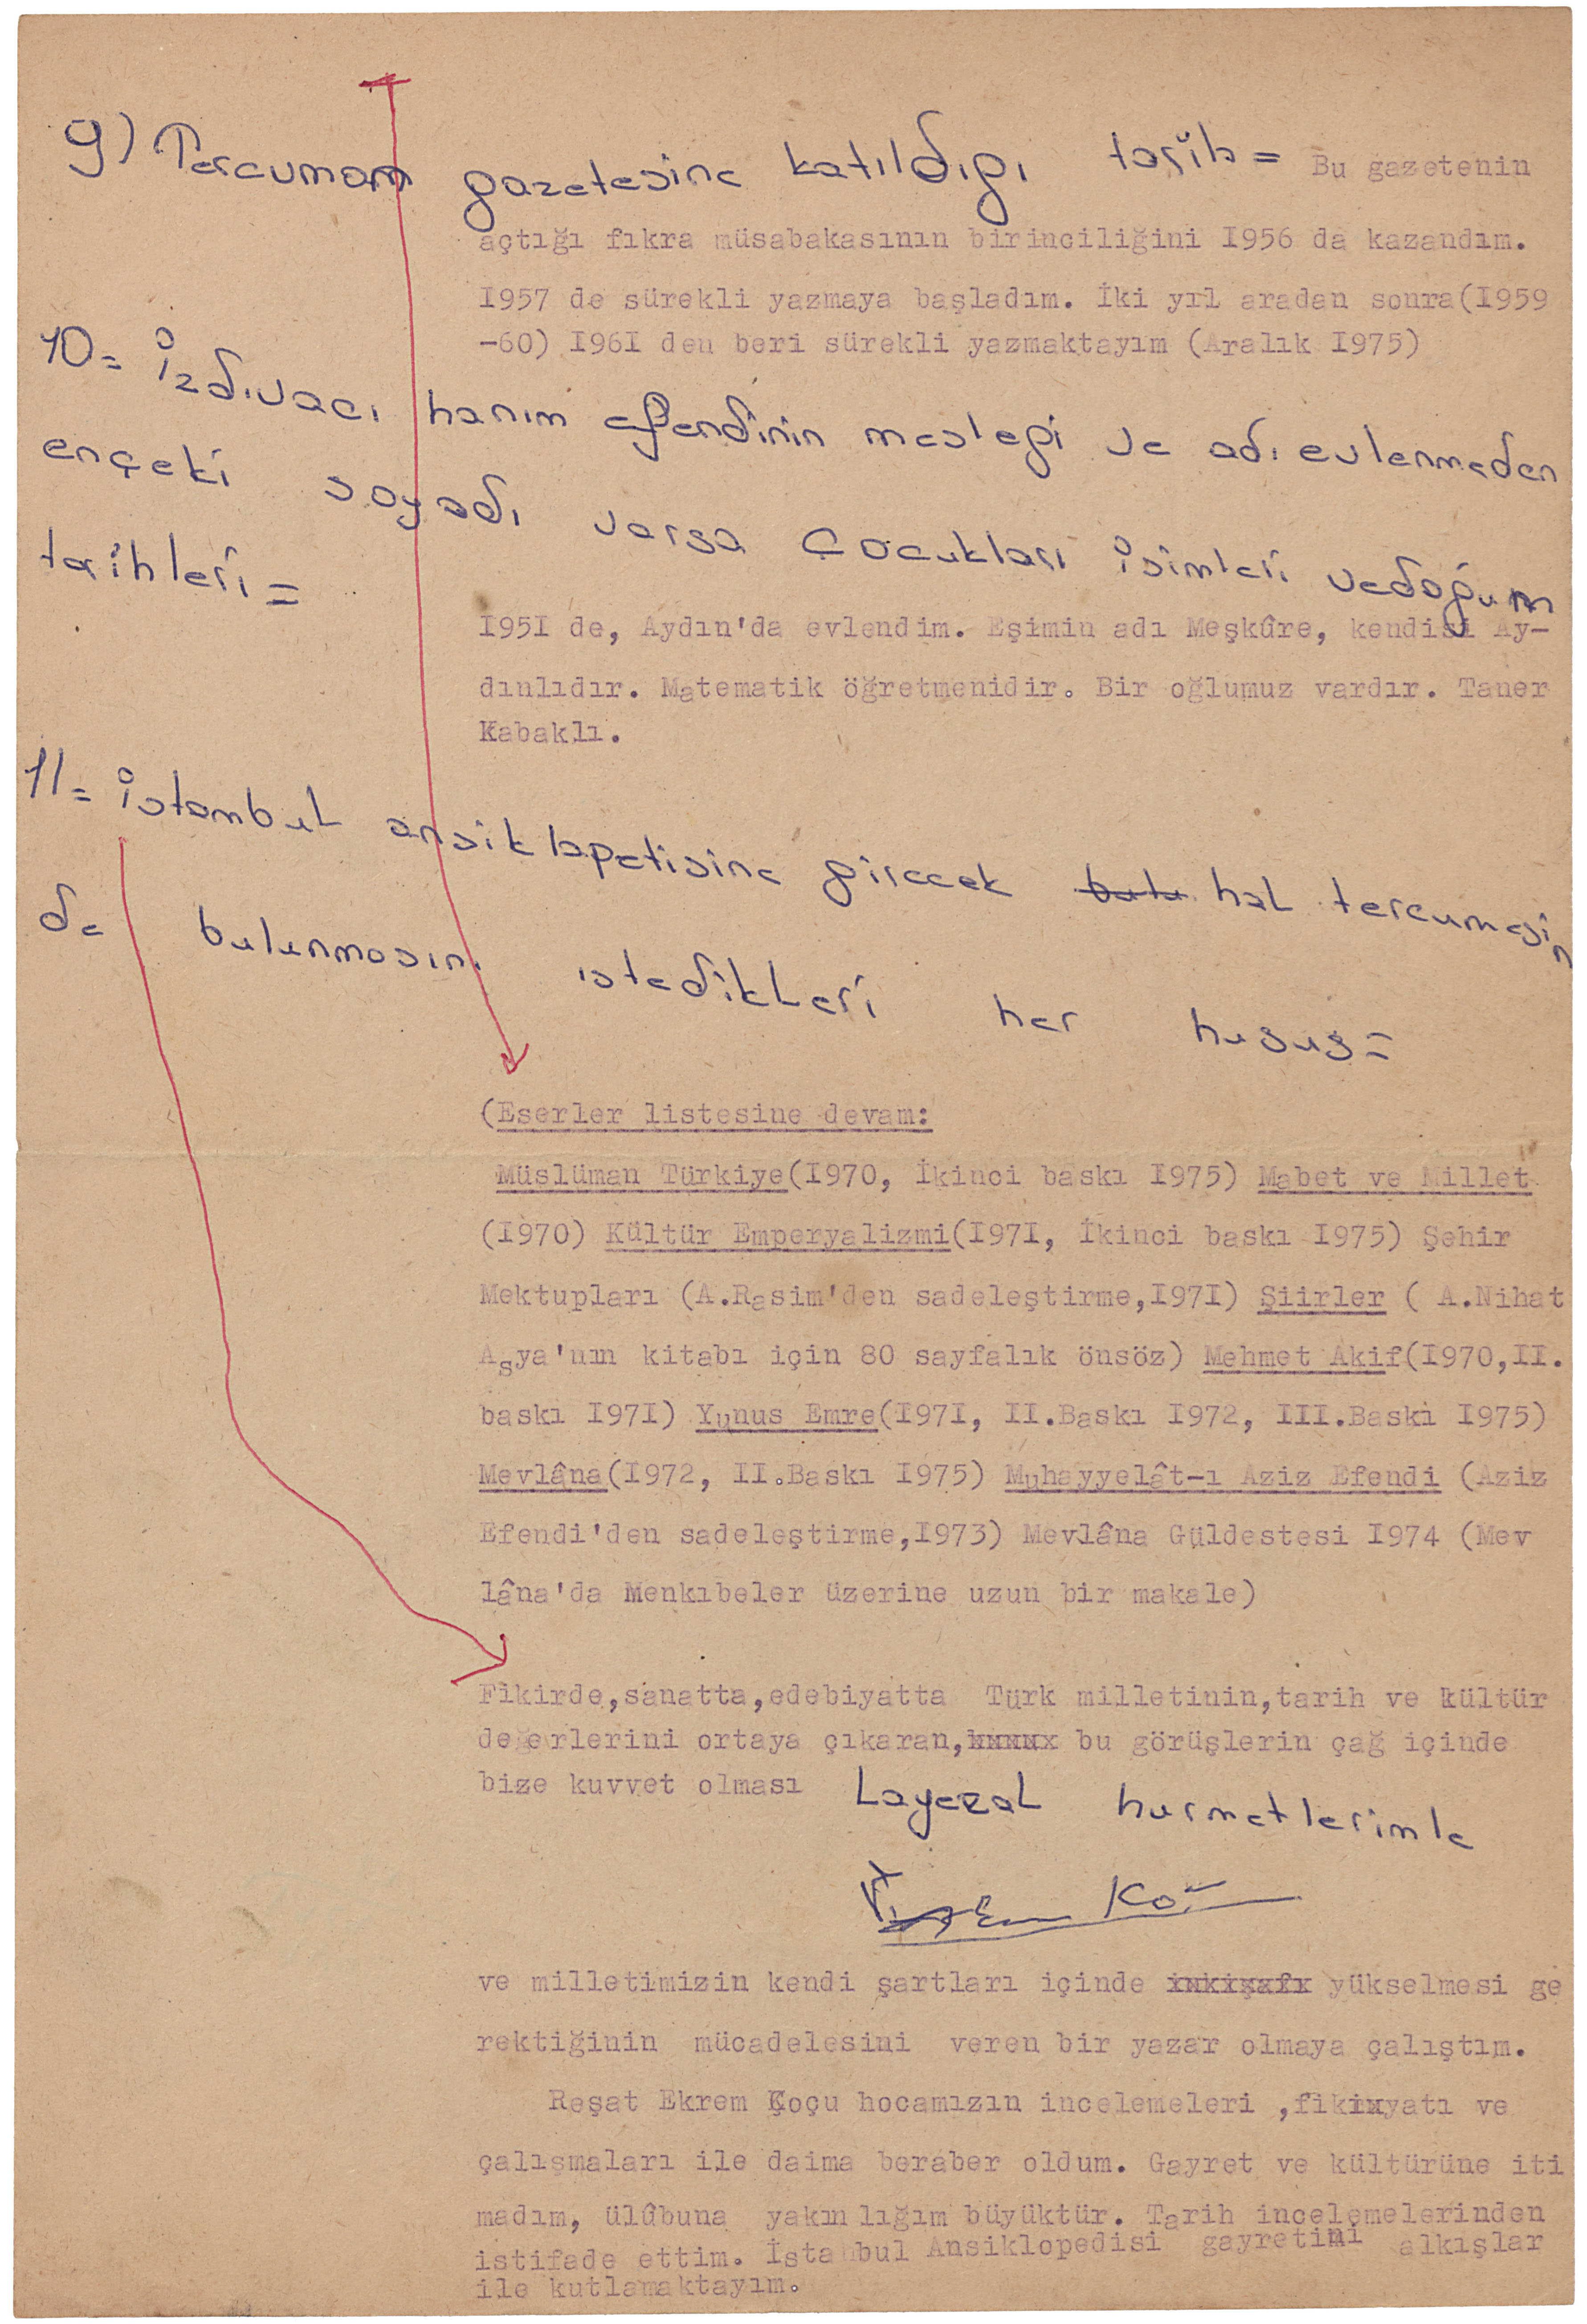 9) Tercuman gazetesine katıldıgı tarih = Bu gazetenin
açtığı fıkra müsabakasının birinciliğini I956 da kazandım.
I957 de sürekli yazmaya başladım. İki yıl aradan sonra(I959
-60) I96I den beri sürekli yazmaktayım (Aralık I975)
10= İzdıvacı hanım efendinin meslegi ve adı evlenmeden
ençeki soyadı varsa Çocukları isimleri ve doğum
tarihleri =
I95I de, Aydın'da evlendim. Eşimin adı Meşkûre, kendisi Ay-
dınlıdır. Matematik öğretmenidir. Bir oğlumuz vardır. Taner
Kabaklı.
11= İstanbul ansiklopetisine girecek hal tercumesin
de bulunmasını istedikleri her husus=
(Eserler listesine devam:
Müslüman Türkiye(I970, İkinci baskı I975) Mabet ve Millet
(I970) Kültür Emperyalizmi(I97I, İkinci baskı I975) Şehir
Mektupları (A.Rasim'den sadeleştirme,I97I) Şiirler ( A.Nihat
Asya'nın kitabı için 80 sayfalık önsöz) Mehmet Akif(I970,II.
baskı I97I) Yunus Emre(I97I, II.Baskı I972, III.Baskı I975)
Mevlâna(I972, II.Baskı I975) Muhayyelât-ı Aziz Efendi (Aziz
Efendi'den sadeleştirme,I973) Mevlâna Güldestesi I974 (Mev
lâna'da Menkıbeler üzerine uzun bir makale)
Fikirde,sanatta,edebiyatta Türk milletinin,tarih ve kültür
değerlerini ortaya çıkaran, bu görüşlerin çağ içinde
bize kuvvet olması Layezal hurmetlerimle
ve milletimizin kendi şartları içinde yükselmesi ge
rektiğinin mücadelesini veren bir yazar olmaya çalıştım.
Reşat Ekrem Koçu hocamızın incelemeleri , ve
çalışmaları ile daima beraber oldum. Gayret ve kültürüne iti
madım, ülûbuna yakınlığım büyüktür. Tarih incelemelerinden
istifade ettim. İstanbul Ansiklopedisi gayretini alkışlar
ile kutlamaktayım.